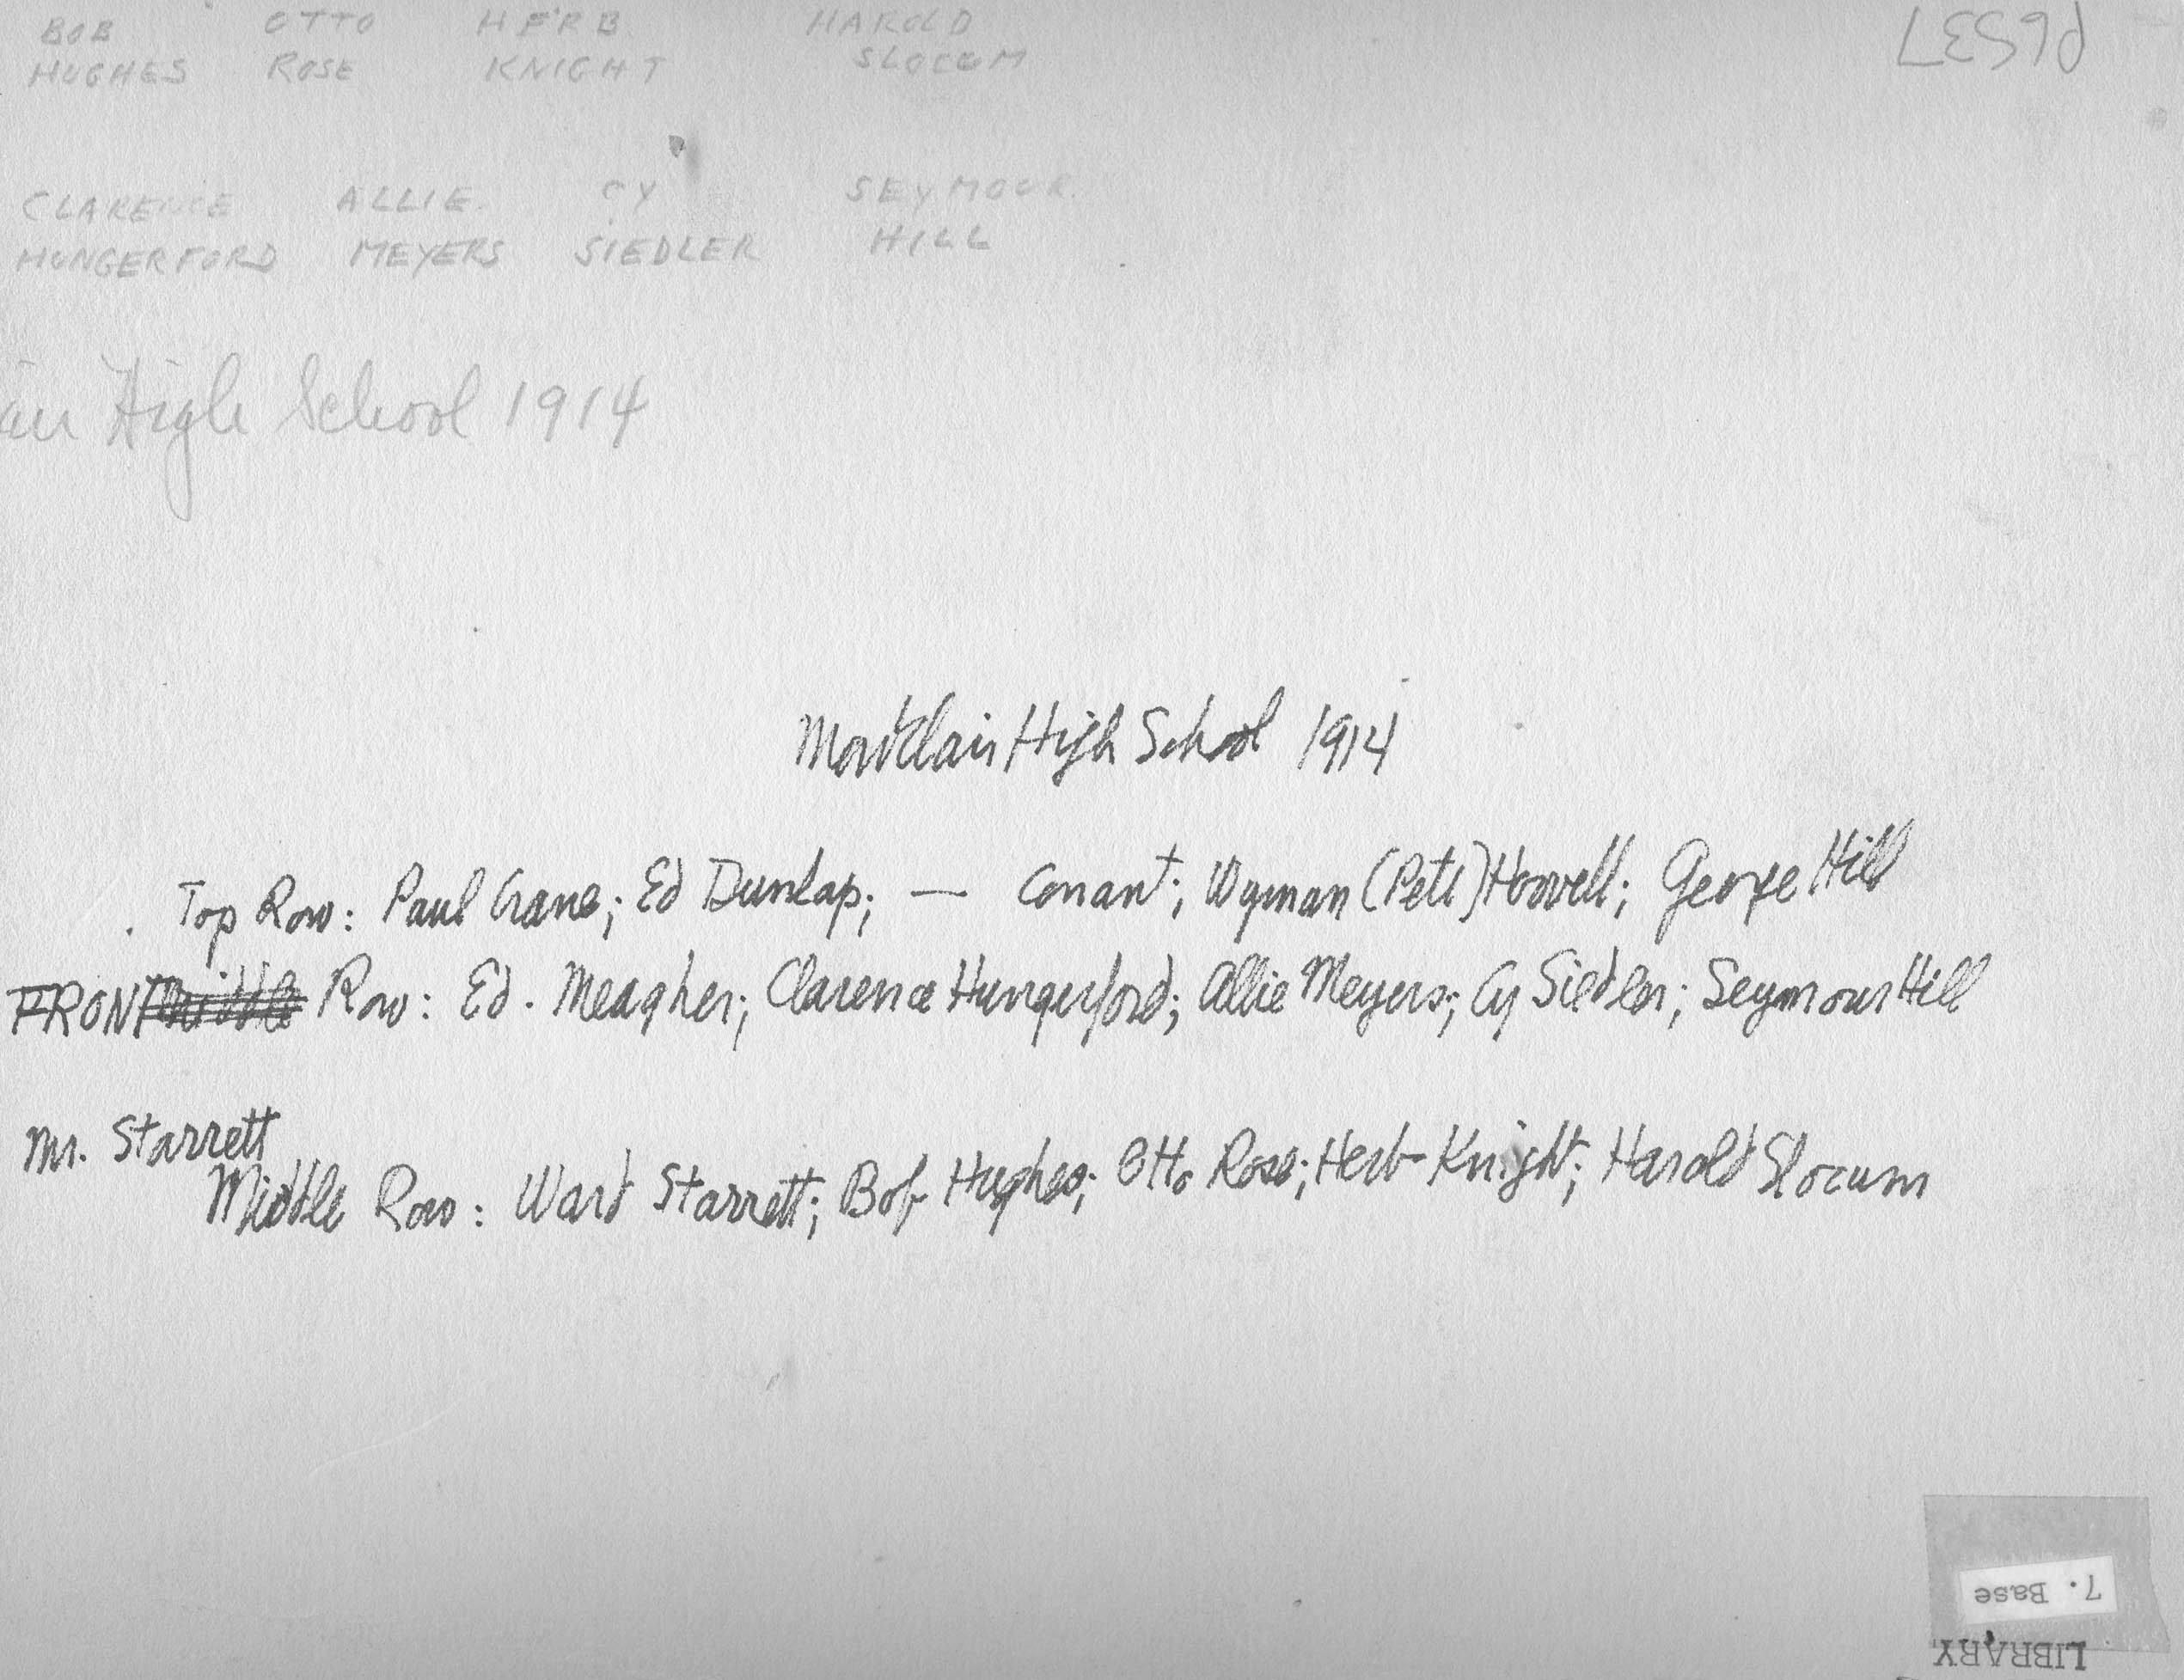 BOB OTTO HERB HAROLD
HUGHES ROSE KNIGHT SLOCUM
P6537
CLARENCE ALLIE CY SEYMOUR
HUNGERFORD MEYERS SIEDLER HILL
High School 1914
Montclair High School 1914
Top Row: Paul Crane; Ed Dunlap; — Conant; Wyman (Pete) Hoovell; George Hill
FRONT Row: Ed. Meagher; Clarence Hungerford; Allie Meyers; Cy Siedler; Seymour Hill
Mr. Starrett
Middle Row: Ward Starrett; Bob Hughes; Otto Rose; Herb Knight; Harold Slocum
7. Base
LIBRARY